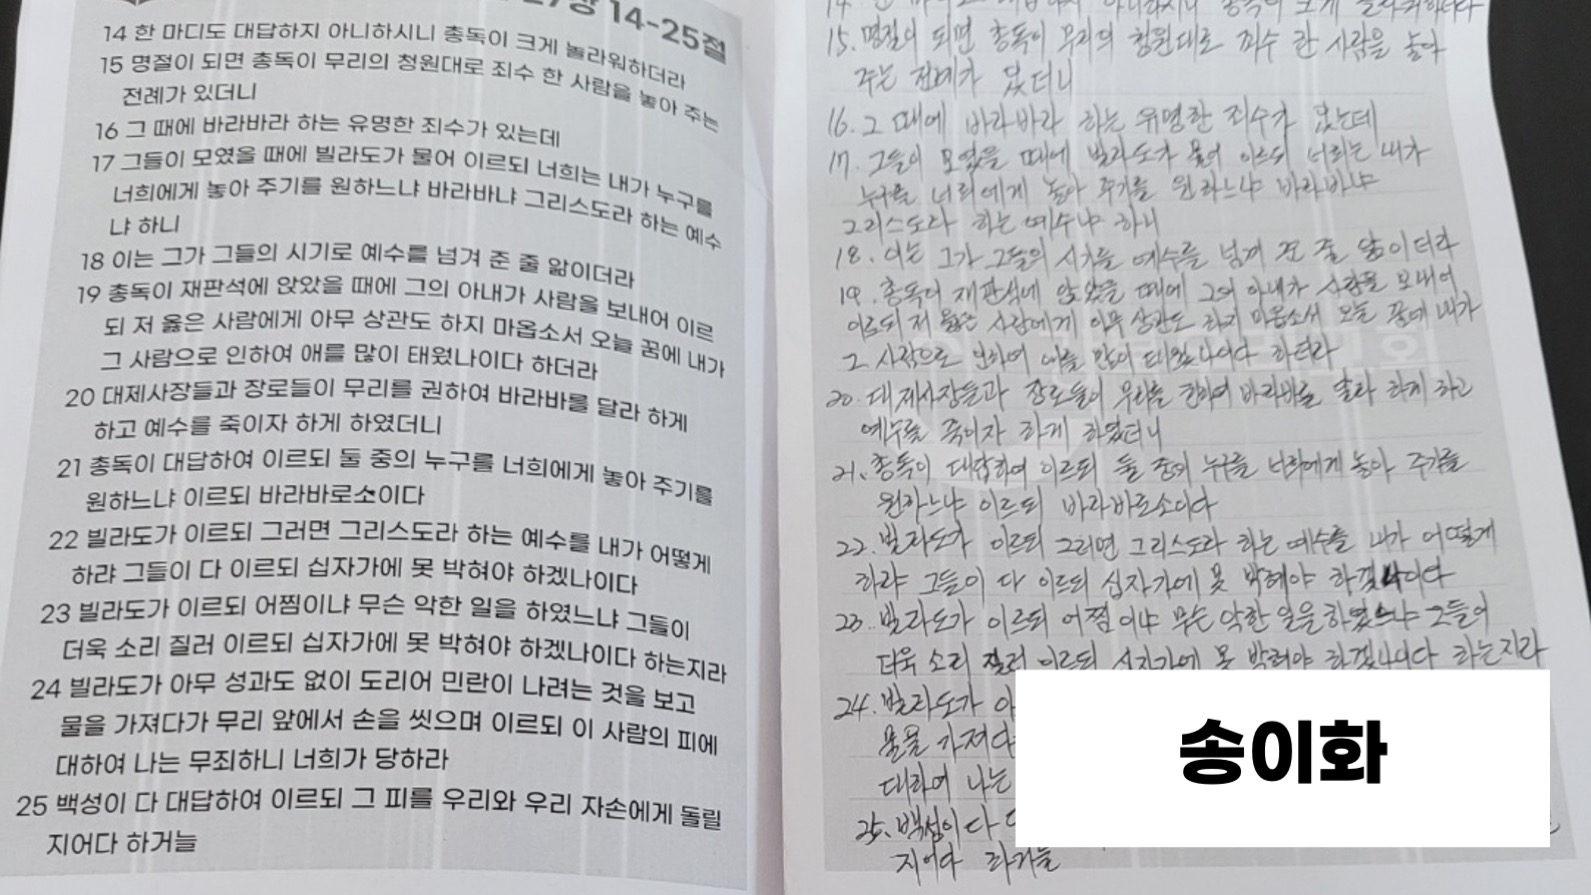 14-25절
14 한 마디도 대답하지 아니하시니 총독이 크게 놀라워하더라
15 명절이 되면 총독이 무리의 청원대로 죄수 한 사람을 놓아 주는
전례가 있더니
16 그 때에 바라바라 하는 유명한 죄수가 있는데
17 그들이 모였을 때에 빌라도가 물어 이르되 너희는 내가 누구를
너희에게 놓아 주기를 원하느냐 바라바냐 그리스도라 하는 예수
냐 하니
18 이는 그가 그들의 시기로 예수를 넘겨 준 줄 앎이더라
19 총독이 재판석에 앉았을 때에 그의 아내가 사람을 보내어 이르
되 저 옳은 사람에게 아무 상관도 하지 마옵소서 오늘 꿈에 내가
그 사람으로 인하여 애를 많이 태웠나이다 하더라
20 대제사장들과 장로들이 무리를 권하여 바라바를 달라 하게
하고 예수를 죽이자 하게 하였더니
21 총독이 대답하여 이르되 둘 중의 누구를 너희에게 놓아 주기를
원하느냐 이르되 바라바로소이다
22 빌라도가 이르되 그러면 그리스도라 하는 예수를 내가 어떻게
하랴 그들이 다 이르되 십자가에 못 박혀야 하겠나이다
23 빌라도가 이르되 어찜이냐 무슨 악한 일을 하였느냐 그들이
더욱 소리 질러 이르되 십자가에 못 박혀야 하겠나이다 하는지라
24 빌라도가 아무 성과도 없이 도리어 민란이 나려는 것을 보고
물을 가져다가 무리 앞에서 손을 씻으며 이르되 이 사람의 피에
대하여 나는 무죄하니 너희가 당하라
25 백성이 다 대답하여 이르되 그 피를 우리와 우리 자손에게 돌릴
지어다 하거늘
15. 명절이 되면 총독이 무리의 청원대로 죄수 한 사람을 놓아
주는 전례가 있더니
16. 그 때에 바라바라 하는 유명한 죄수가 있는데
17. 그들이 모였을 때에 빌라도가 물어 이르되 너희는 내가
누구를 너희에게 놓아 주기를 원하느냐 바라바냐
그리스도라 하는 예수냐 하니
18. 이는 그가 그들의 시기를 예수를 넘겨 준 줄 앎이더라
19. 총독이 재판석에 앉았을 때에 그의 아내가 사람을 보내어
이르되 저 옳은 사람에게 아무 상관도 하지 마옵소서 오늘 꿈에 내가
그 사람으로 인하여 애를 많이 태웠나이다 하더라
20. 대제사장들과 장로들이 무리를 권하여 바라바를 달라 하게 하고
예수를 죽이자 하게 하였더니
21. 총독이 대답하여 이르되 둘 중의 누구를 너희에게 놓아 주기를
원하느냐 이르되 바라바로소이다
22. 빌라도가 이르되 그러면 그리스도라 하는 예수를 내가 어떻게
하랴 그들이 다 이르되 십자가에 못 박혀야 하겠나이다
23. 빌라도가 이르되 어찜이냐 무슨 악한 일을 하였느냐 그들이
더욱 소리 질러 이르되 십자가에 못 박혀야 하겠나이다 하는지라
24. 빌라도가 아
물을 가져다
대하여 나는
25. 백성이 다
지어다 하거늘
송이화